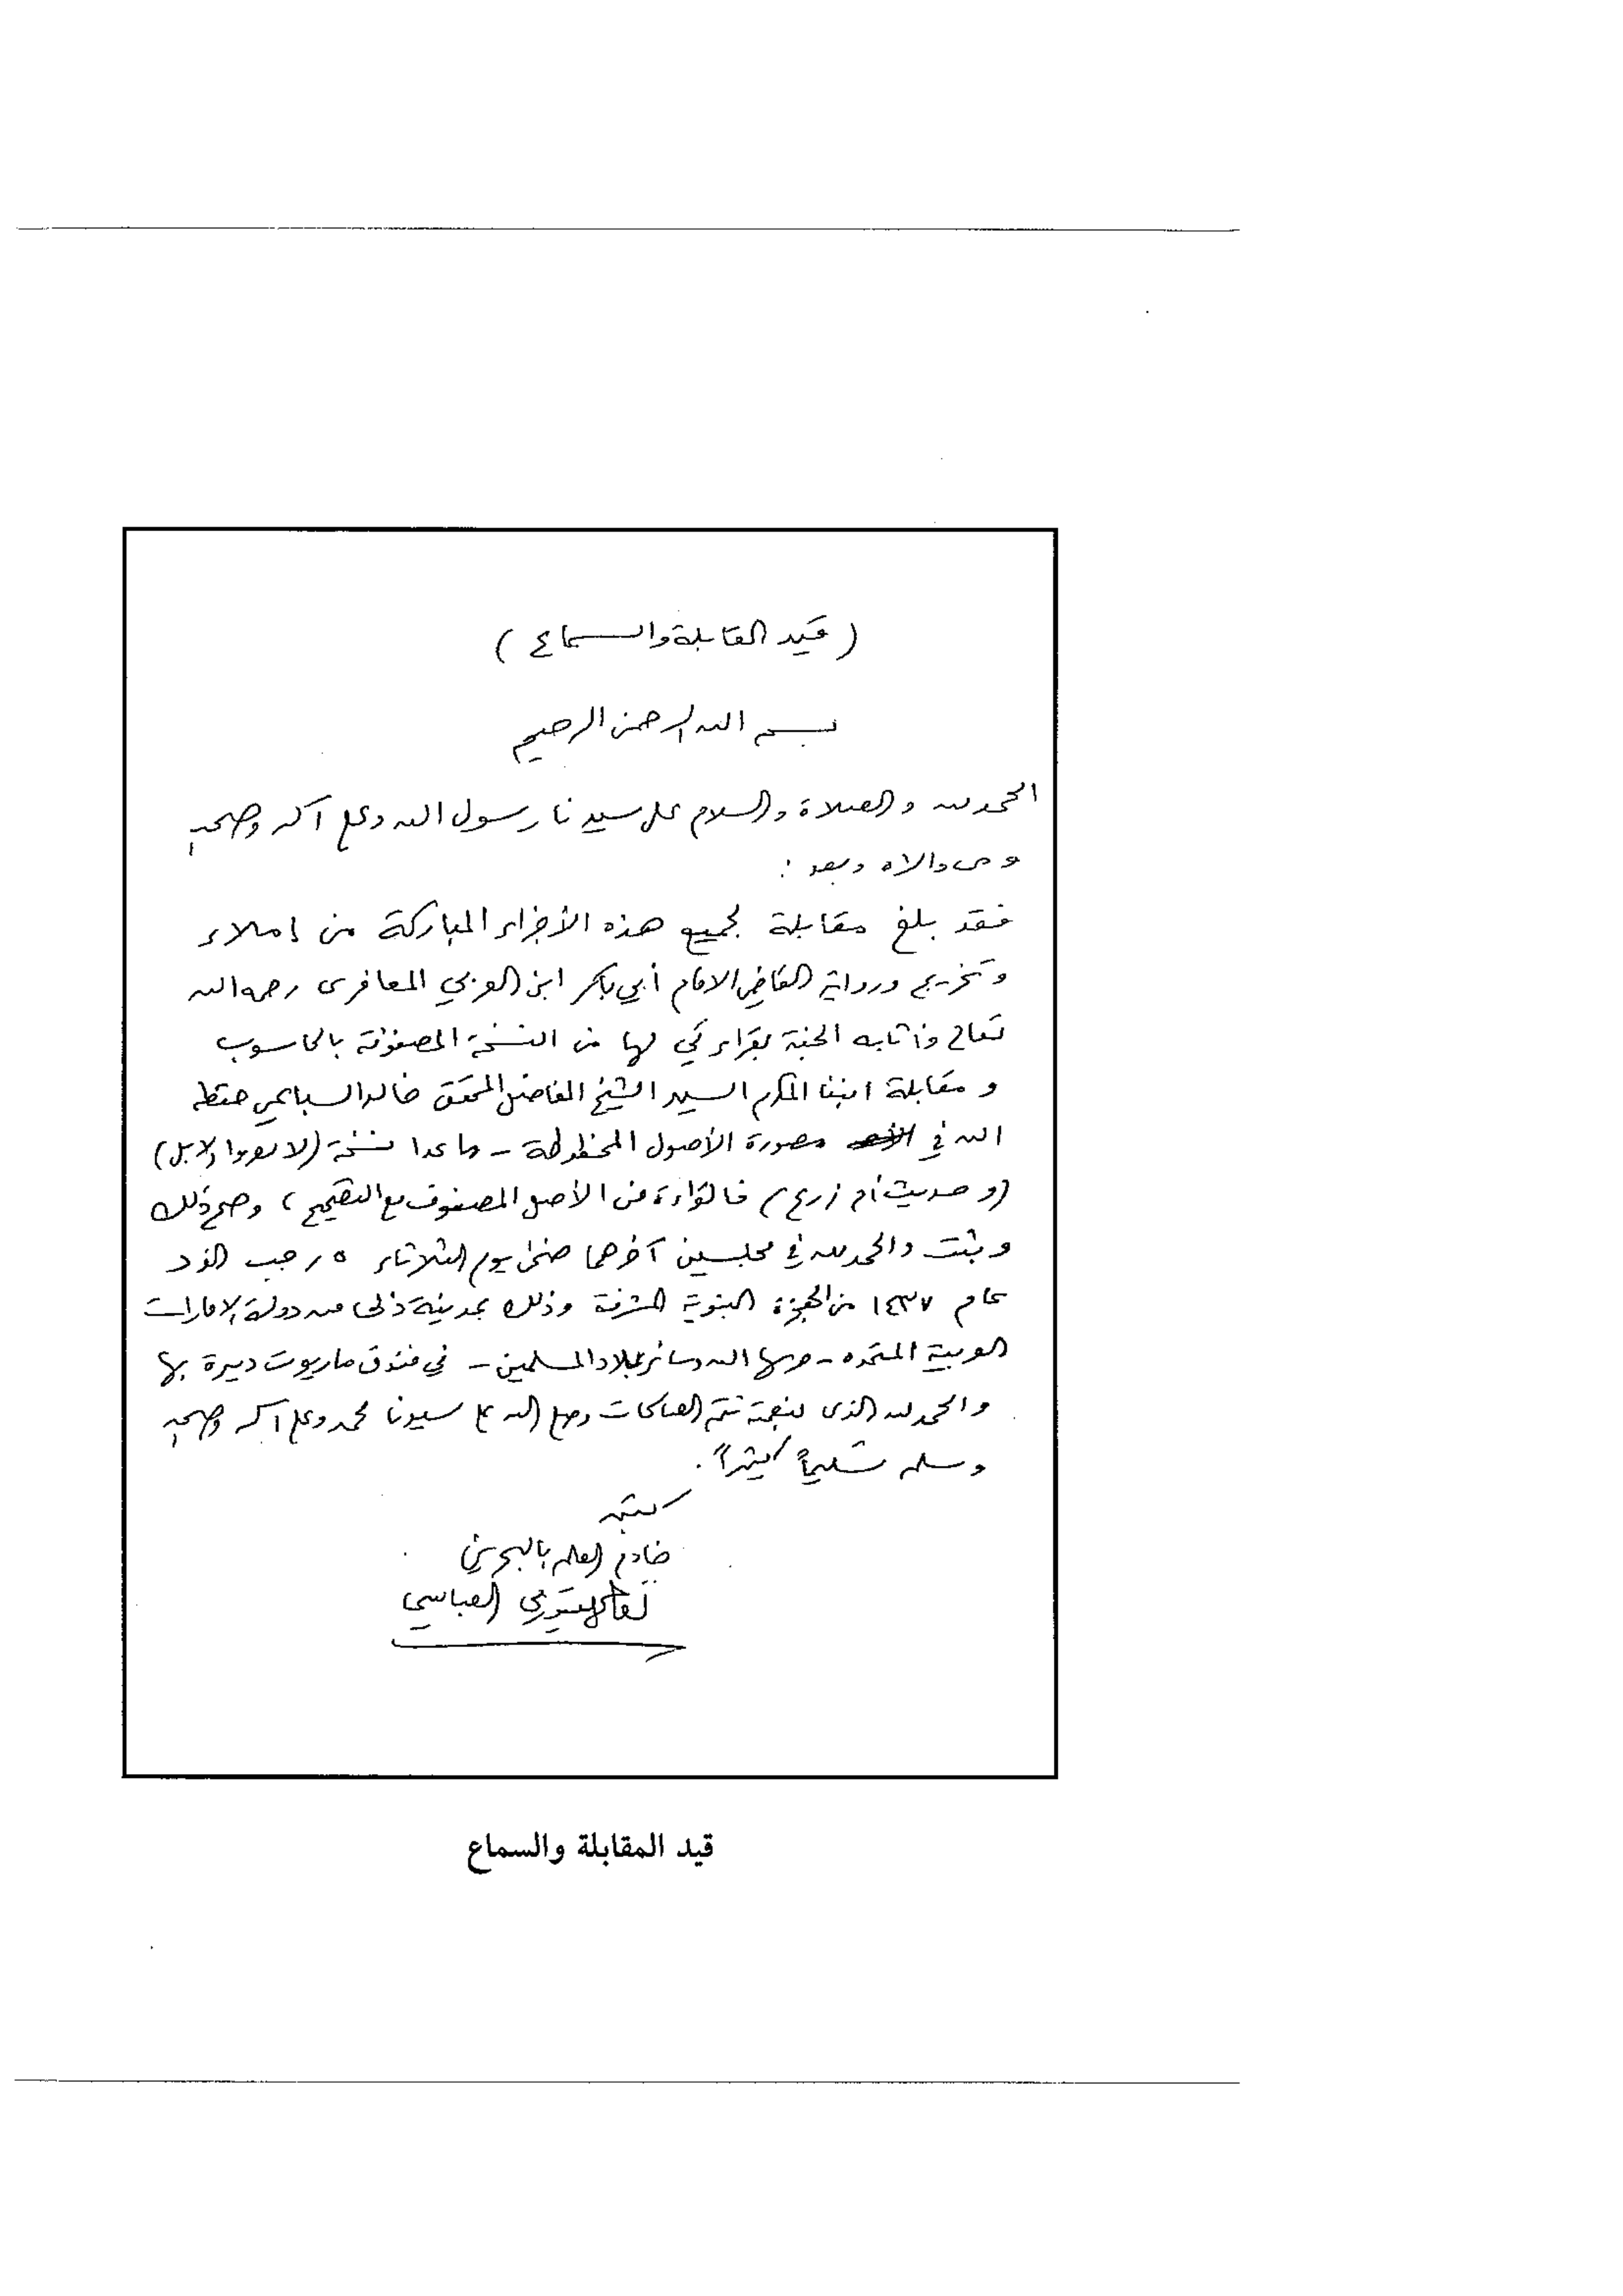 ( قيد المقابلة والسماع )
بسم الله الرحمن الرحيم
الحمد لله والصلاة والسلام على سيدنا رسول الله وعلى آله وصحبه
ومن والاه وبعد :
فقد بلغ مقابلة لجميع هذه الأجزاء المباركة من إملاء
وتخريج ورواية القاضي الامام أبي بكر ابن العربي المعافرى رحمه الله
تعالى وأثابه الجنة بقراءتي لها من النسخة المصفوفة بالحاسوب
و مقابلة ابننا المكرم السيد الشيخ الفاضل المحقق خالد السباعي حفظه
الله في مصورة الأصول المخطوطة - ما عدا نسخة (لا تصروا الابل)
(و حديث أم زرع) فالقراءة من الأصل المصفوف مع التصحيح ، وصح ذلك
وثبت والحمد لله في مجلسين آخرهما ضحى يوم الثلاثاء ٥ رجب الفرد
عام ١٤٣٧ من الهجرة النبوية المشرفة وذلك بمدينة دبي من دولة الامارات
العربية المتحدة - حرسها الله وسائر بلاد المسلمين - في فندق ماريوت ديرة بها
والحمد لله الذى بنعمته تتم الصالحات وصلى الله على سيدنا محمد وعلى آله وصحبه
وسلم تسليماً كثيراً .
كتبه
خادم العلم بالبحرين
نظام يعقوبي العباسي
قيد المقابلة والسماع